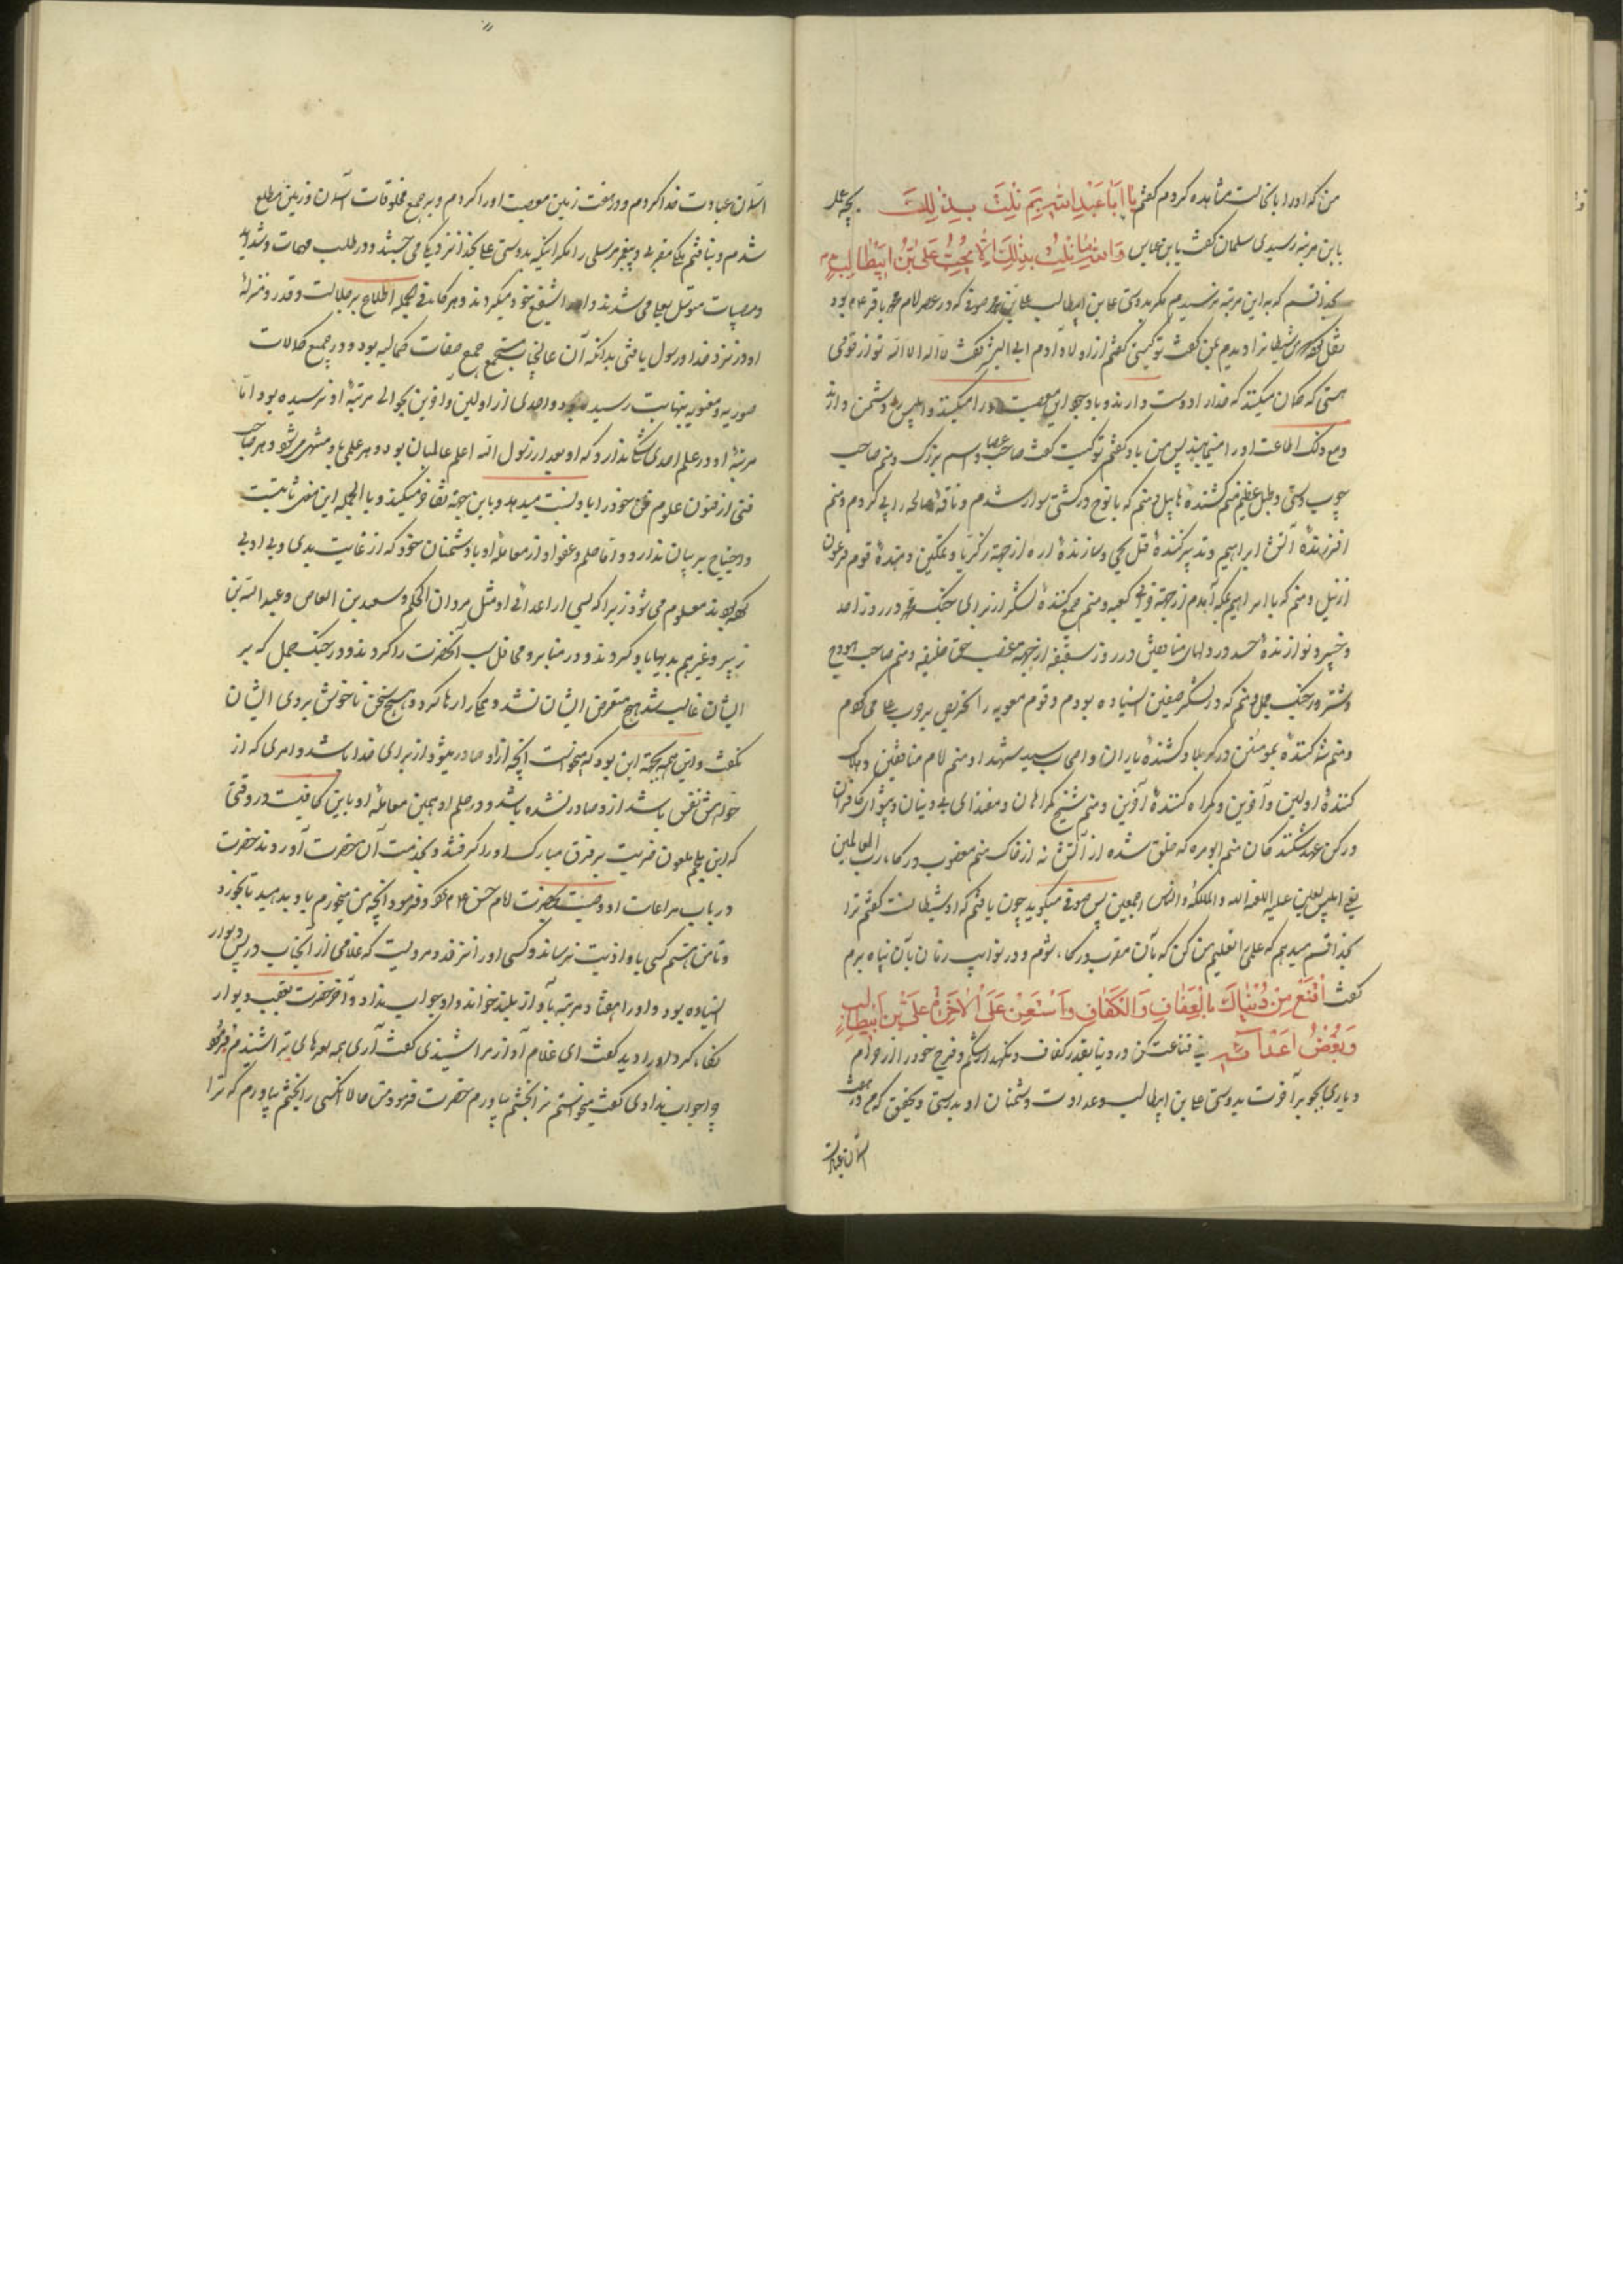 من که او را باین حالت مشاهده کردم گفتم یا اَبا عَبْدِ اللهِ بِمَ نِلْتَ بِذٰلِکَ بچه عمل
باین مرتبه رسیدی سلمان گفت یا بن عباس وَاللهِ مٰا نِلْتُ بِذٰلِکَ اِلّٰا بِحُبِّ عَلِیِّ بْنِ اَبیطٰالِبٍ
بخدا قسم که به این مرتبه نرسیدم مگر بدوستی علی بن ابیطالب علی بن محمد صوفی که در عصر امام محمد باقر ع بود
نقل کرده که من شیطانرا دیدم بمن گفت تو کیستی گفتم از اولاد آدم ابی البشر گفت لا اله الا الله تو از قومی
هستی که گمان میکنند که خدا را دوست دارند و با وجود این معصیت او را میکنند و ابلیس را دشمن دارند
و مع ذلک اطاعت او را مینمایند پس من باو گفتم تو کیستی گفت صاحب عصا و اسم بزرگ و منم صاحب
چوب دستی و طبل عظیم منم کشندهٔ هابیل و منم که با نوح در کشتی سوار شدم و ناقهٔ صالح را پی کردم و منم
افروزندهٔ آتش ابراهیم و تدبیر کنندهٔ قتل یحیی و سازندهٔ اره از جهة زکریا و تمکین دهندهٔ قوم فرعون
از نیل و منم که با ابراهیم بمکه آمدم از جهة کعبه و منم جمع کنندهٔ لشکر از برای جنگ محمد در روز احد
و خیبر و نوازندهٔ حسد در دلهای منافقین در روز سقیفه از جهة غصب حق خلیفه و منم صاحب هودج
و شتر در جنگ جمل و منم که در لشکر صفین ایستاده بودم و قوم معویه را تحریص بحرب علی می کردم
و منم شماتت کنندهٔ بمومنین در کربلا و کشندهٔ یاران و اصحاب سید شهدا و منم امام منافقین و هلاک
کنندهٔ اولین و آخرین و گمراه کنندهٔ آخرین و منم شیخ گمراهان و مقتدای بی دینان و پیشوای کافران
و رکن عهد شکنندگان منم ابومره که خلق شده از آتش نه از خاک منم مغضوب درگاه رب العالمین
یعنی ابلیس لعین علیه اللعنة الله و الملئکة والناس اجمعین پس صوفی میگوید چون یافتم که او شیطانست گفتم ترا
بخدا قسم میدهم که عملی را تعلیم من کن که بآن مقرب درگاه شوم و در نوایب زمان بآن پناه برم
گفت اِقْنَعْ مِنْ دُنْیٰاکَ بِالْعِفٰافِ وَالْکَفٰافِ وَاسْتَعِنْ عَلَی الْاٰخِرَةِ بِعَلِیِّ بْنِ اَبیطٰالِبٍ
وَبُغْضِ اَعْدٰائِهِ یعنی قناعت کن در دنیا بقدر کفاف و نگهدار شکم و فرج خود را از حرام
و یاری بجو بر آخرت بدوستی علی بن ابیطالب و عداوت دشمنان او بدرستی و تحقیق که من در هفت
آسمان عبادت
آسمان عبادت خدا کردم و در هفت زمین معصیت او را کردم و بر جمیع مخلوقات آسمان و زمین مطلع
شدم و نیافتم ملک مقرب و پیغمبر مرسلی را مگر اینکه بدوستی علی بخدا نزدیکی می جستند و در طلب مهمات و شداید
و مصیبات متوسل بعلی می شدند و او را شفیع خود میکردند و هر که را فی الجمله اطلاع بر جلالت و قدر و منزلهٔ
او در نزد خدا و رسول یافتی بدانکه آن عالیجناب مستجمع جمیع صفات کمالیه بود و در جمیع کمالات
صوریه و معنویه بنهایت رسیده بود و احدی از اولین و آخرین بحوالی مرتبهٔ او نرسیده بود امّا
مرتبهٔ او در علم احدی شک ندارد که او بعد از رسول الله اعلم عالمیان بود و هر علمی باو منتهی می شود و هر صاحب
فنی از فنون علوم فن خود را باو نسبت میدهد و باین جهة تفاخر میکنند و بالجمله این معنی ثابتست
و احتیاج ببیان ندارد و امّا حلم و عفو او از معاملهٔ او با دشمنان خود که از غایت بدی و بی ادبی
کرده بودند معلوم می شود زیرا که بسی از اعدای او مثل مروان الحکم و سعید بن العاص و عبد الله بن
زبیر و غیرهم بدیها باو کردند و در منابر و محافل سب آنحضرت را کردند و در جنگ جمل که بر
ایشان غالب شد هیچ متعرض ایشان نشد و همگی را رها کرد و هیچ سخن ناخوش بروی ایشان
نگفت و این همه بجهة این بود که میخواست آنچه از او صادر میشود از برای خدا باشد و امری که از
خواهش نفس باشد از او صادر نشده باشد و در حلم او همین معاملهٔ او با ابن کافیست در وقتی
که ابن ملجم ملعون ضربت بر فرق مبارک او زد گرفتند و بخدمت آن حضرت آوردند حضرت
در باب مراعات او وصیت بحضرت امام حسن ع کرد و فرمود آنچه من میخورم باو بدهید تا بخورد
و تا من هستم کسی باو اذیت نرساند و کسی او را نزند و مرویست که غلامی از آنجناب در پس دیوار
ایستاده بود و او را هفتاد مرتبه بآواز بلند خواند و او جواب نداد و آخر حضرت بعقب دیوار
نگاه کرد او را دید گفت ای غلام آواز مرا شنیدی گفت آری همه بودهای ترا شنیدم فرمود
چرا جواب ندادی گفت میخواستم ترا بخشم بیاورم حضرت فرمود من حالا آنکسی را بخشم بیاورم که ترا